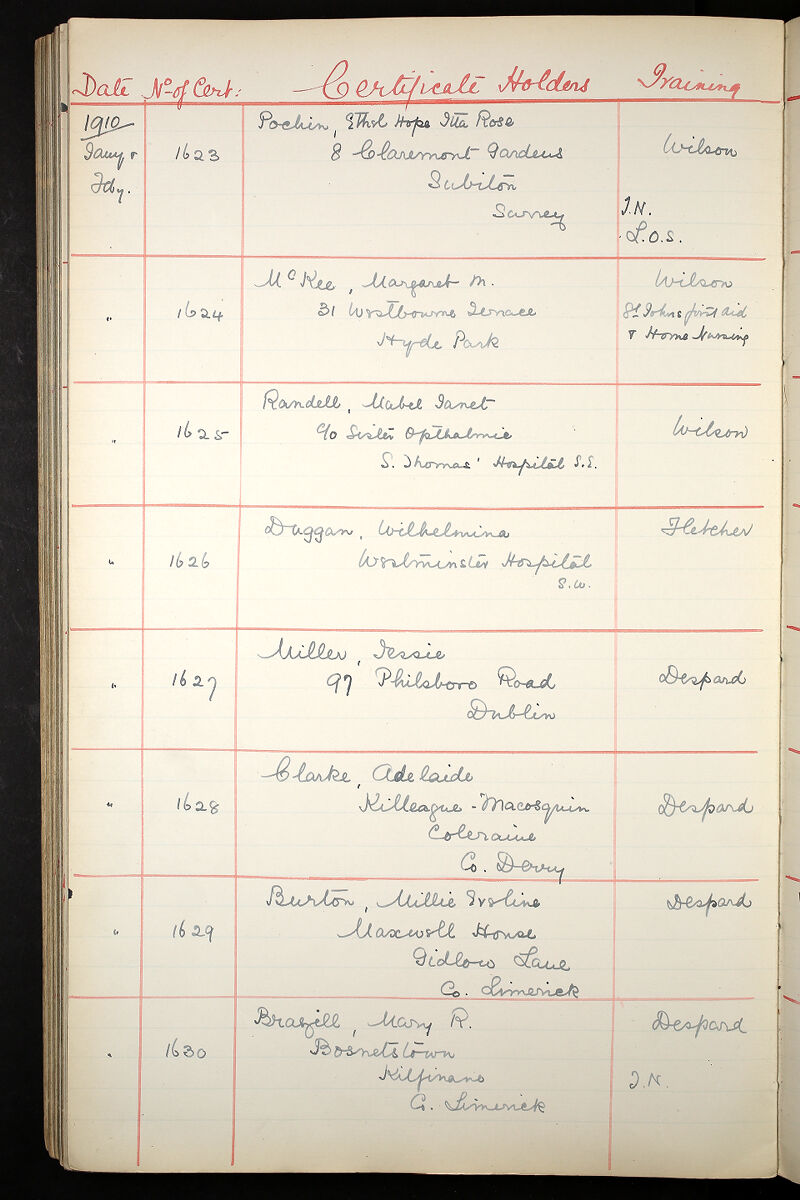 Date No of Cert: Certificate Holders Training
1910 Pochin, Ethel Hope Itta Rose
Jany & 1623 8 Claremont Gardens Wilson
Fby. Subiton
Surrey I.N.
L.O.S.
McKee, Margaret M. Wilson
" 1624 31 Westbourne Terrace St Johns first aid
Hyde Park & Home Nursing
Randell, Mabel Janet
" 1625 c/o Sister Opthalmic Wilson
S. Thomas' Hospital S.E.
Duggan, Wilhelmina Fletcher
" 1626 Westminster Hospital
S.W.
Miller, Jessie
" 1627 97 Philsboro Road Despard
Dublin
Clarke, Adelaide
" 1628 Killeague - Macosquin Despard
Coleraine
Co. Derry
Burton, Millie Eveline Despard
" 1629 Maxwell House
Gidlow Lane
Co. Limerick
Brazill, Mary R. Despard
" 1630 Bosnetstown
Kilfinane I.N.
Co. Limerick